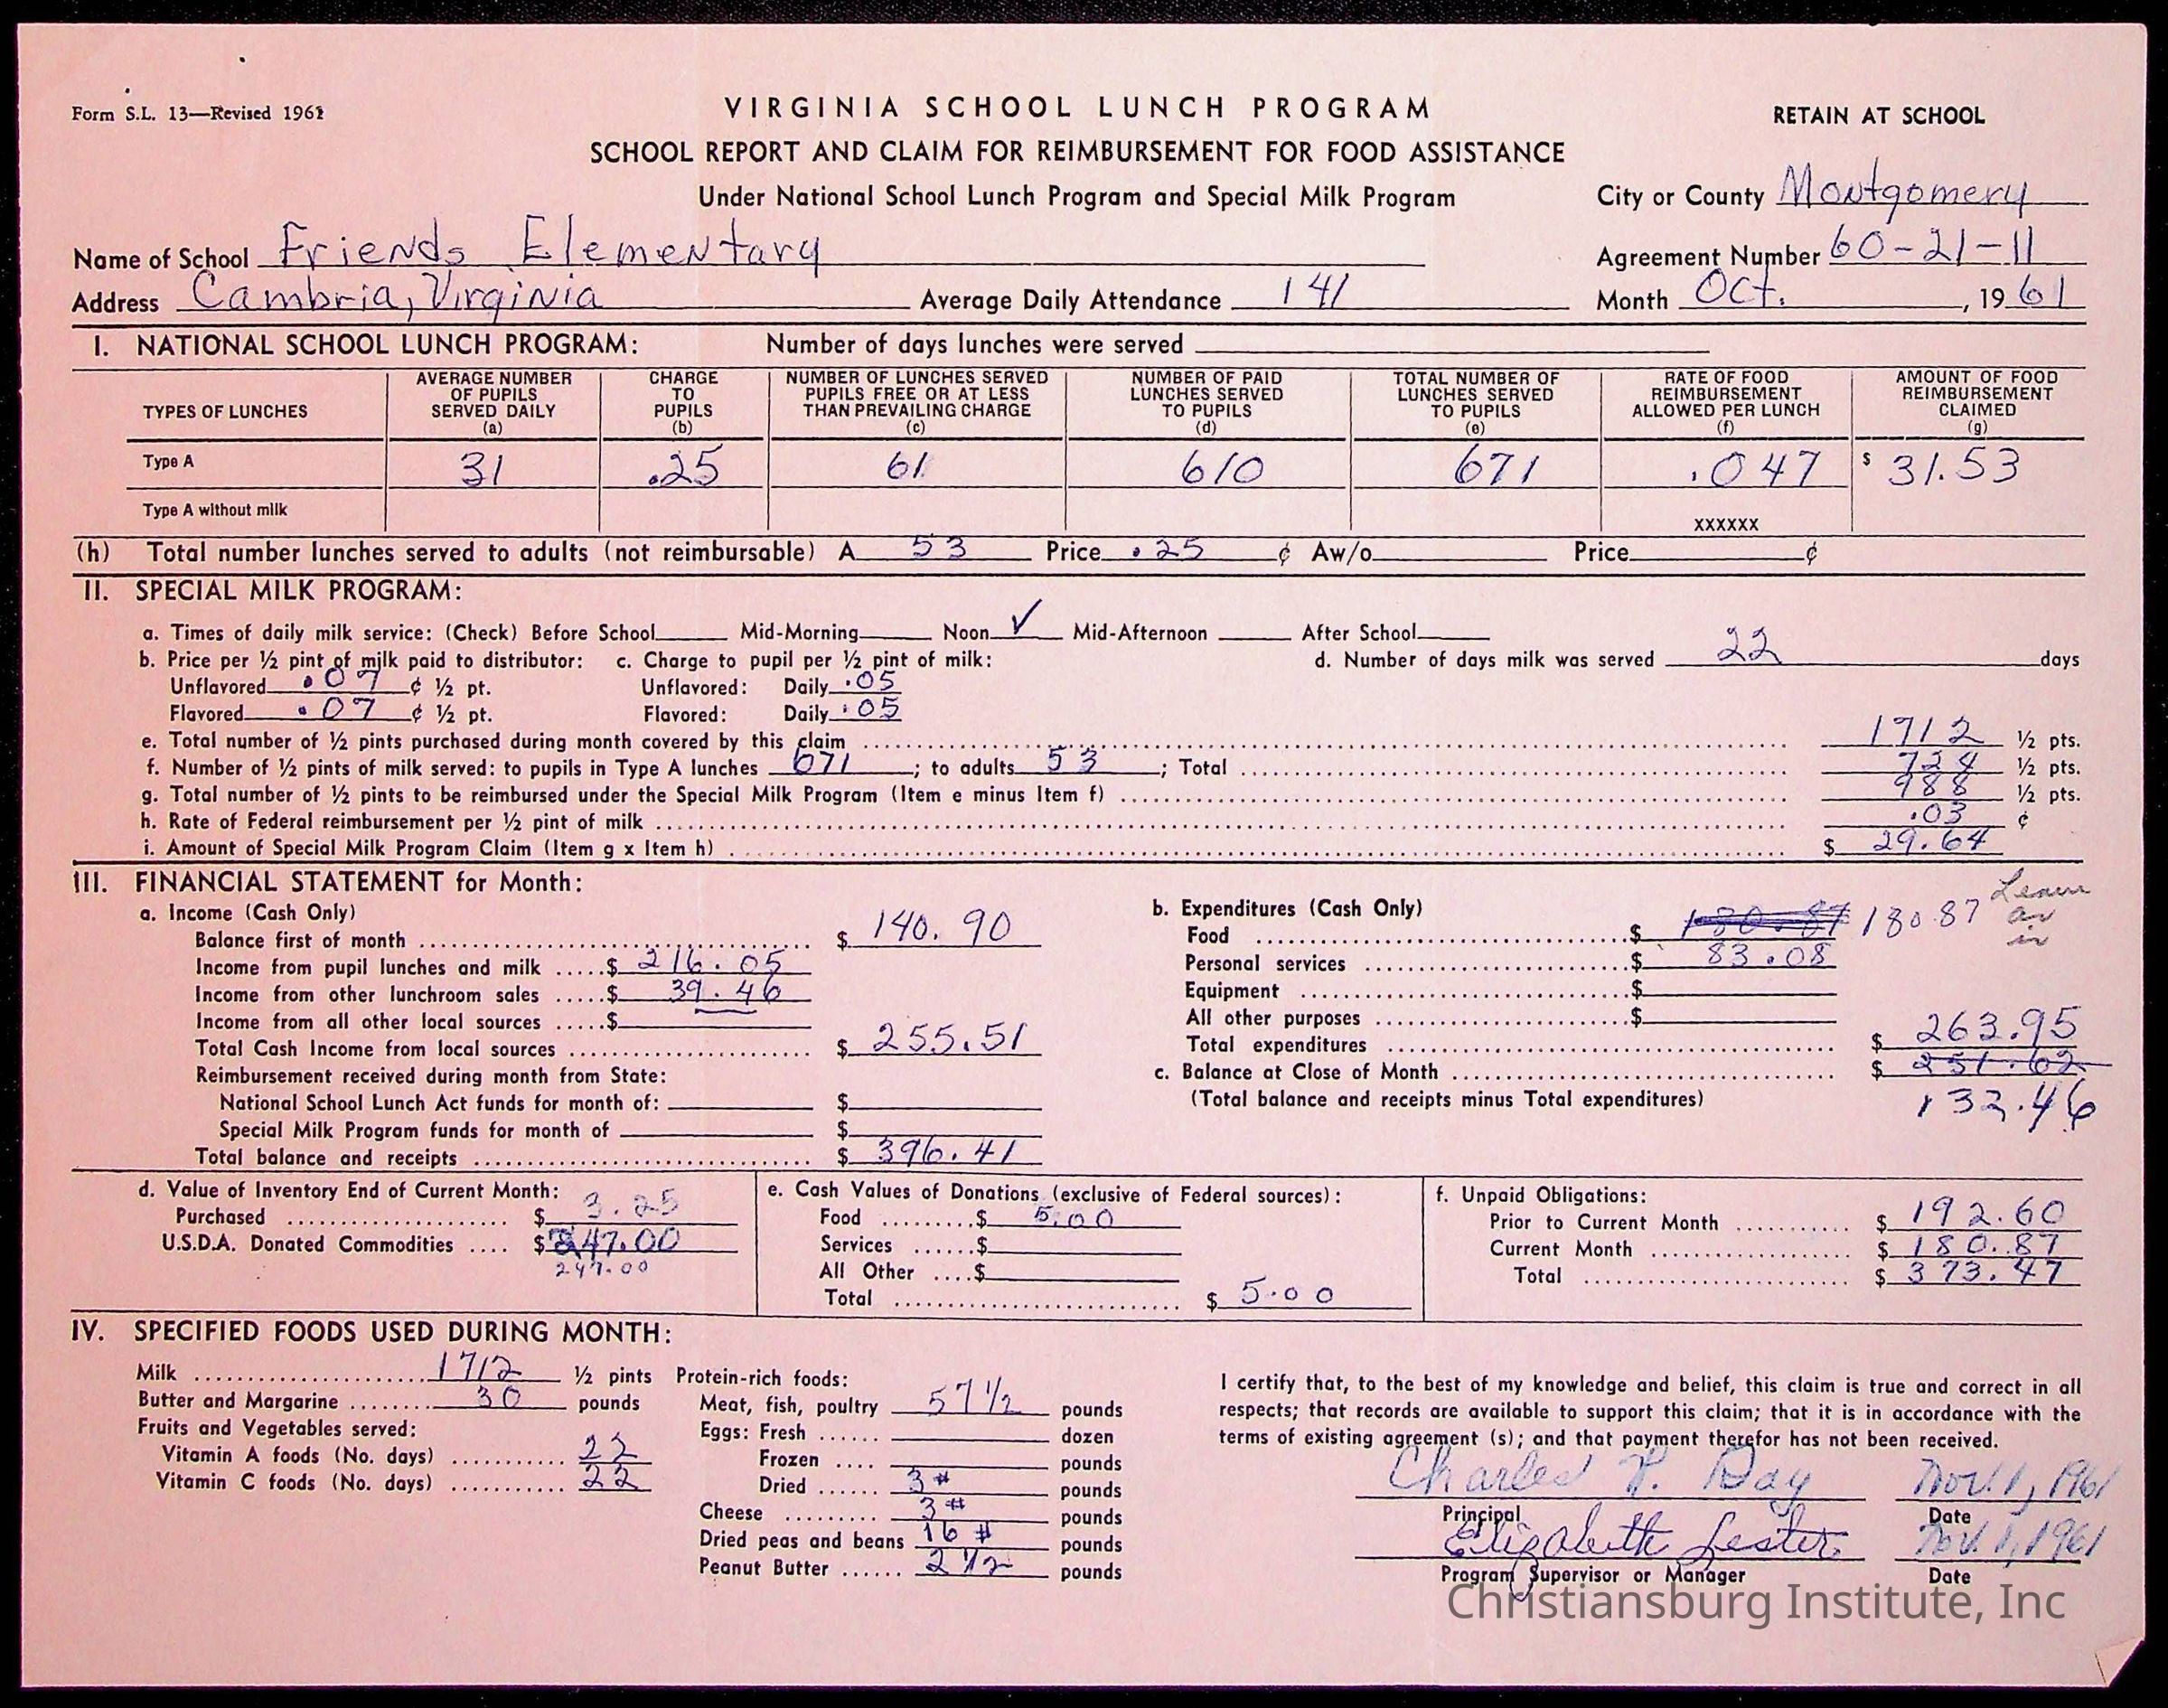 Form S.L. 13—Revised 1961
VIRGINIA SCHOOL LUNCH PROGRAM
RETAIN AT SCHOOL
SCHOOL REPORT AND CLAIM FOR REIMBURSEMENT FOR FOOD ASSISTANCE
Under National School Lunch Program and Special Milk Program
City or County Montgomery
Name of School Friends Elementary
Agreement Number 60-21-11
Address Cambria, Virginia Average Daily Attendance 141
Month Oct. , 19 61
I. NATIONAL SCHOOL LUNCH PROGRAM: Number of days lunches were served
TYPES OF LUNCHES
AVERAGE NUMBER OF PUPILS SERVED DAILY (a)
CHARGE TO PUPILS (b)
NUMBER OF LUNCHES SERVED PUPILS FREE OR AT LESS THAN PREVAILING CHARGE (c)
NUMBER OF PAID LUNCHES SERVED TO PUPILS (d)
TOTAL NUMBER OF LUNCHES SERVED TO PUPILS (e)
RATE OF FOOD REIMBURSEMENT ALLOWED PER LUNCH (f)
AMOUNT OF FOOD REIMBURSEMENT CLAIMED (g)
Type A 31 .25 61 610 671 .047 $ 31.53
Type A without milk XXXXXX
(h) Total number lunches served to adults (not reimbursable) A 53 Price .25 ¢ Aw/o Price ¢
II. SPECIAL MILK PROGRAM:
a. Times of daily milk service: (Check) Before School Mid-Morning Noon ✓ Mid-Afternoon After School
b. Price per ½ pint of milk paid to distributor: c. Charge to pupil per ½ pint of milk: d. Number of days milk was served 22 days
Unflavored .07 ¢ ½ pt. Unflavored: Daily .05
Flavored .07 ¢ ½ pt. Flavored: Daily .05
e. Total number of ½ pints purchased during month covered by this claim 1712 ½ pts.
f. Number of ½ pints of milk served: to pupils in Type A lunches 671 ; to adults 53 ; Total 724 ½ pts.
g. Total number of ½ pints to be reimbursed under the Special Milk Program (Item e minus Item f) 988 ½ pts.
h. Rate of Federal reimbursement per ½ pint of milk .03 ¢
i. Amount of Special Milk Program Claim (Item g x Item h) $ 29.64
III. FINANCIAL STATEMENT for Month:
a. Income (Cash Only)
Balance first of month $ 140.90
Income from pupil lunches and milk $ 216.05
Income from other lunchroom sales $ 39.46
Income from all other local sources $
Total Cash Income from local sources $ 255.51
Reimbursement received during month from State:
National School Lunch Act funds for month of: $
Special Milk Program funds for month of $
Total balance and receipts $ 396.41
b. Expenditures (Cash Only)
Food $ 180.87 180.87 Leave as is
Personal services $ 83.08
Equipment $
All other purposes $
Total expenditures $ 263.95
c. Balance at Close of Month $ 251.62
(Total balance and receipts minus Total expenditures) 132.46
d. Value of Inventory End of Current Month:
Purchased $ 3.25
U.S.D.A. Donated Commodities $ 247.00
247.00
e. Cash Values of Donations (exclusive of Federal sources):
Food $ 5.00
Services $
All Other $
Total $ 5.00
f. Unpaid Obligations:
Prior to Current Month $ 192.60
Current Month $ 180.87
Total $ 373.47
IV. SPECIFIED FOODS USED DURING MONTH:
Milk 1712 ½ pints
Butter and Margarine 30 pounds
Fruits and Vegetables served:
Vitamin A foods (No. days) 22
Vitamin C foods (No. days) 22
Protein-rich foods:
Meat, fish, poultry 57 1/2 pounds
Eggs: Fresh dozen
Frozen pounds
Dried 3# pounds
Cheese 3# pounds
Dried peas and beans 16 # pounds
Peanut Butter 2 1/2 pounds
I certify that, to the best of my knowledge and belief, this claim is true and correct in all
respects; that records are available to support this claim; that it is in accordance with the
terms of existing agreement (s); and that payment therefor has not been received.
Charles P. Day Nov. 1, 1961
Principal Date
Elizabeth Lester Nov. 1, 1961
Program Supervisor or Manager Date
Christiansburg Institute, Inc